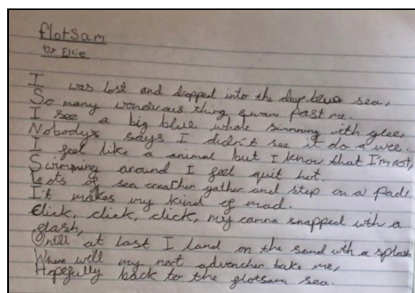 flotsam
by Ellie
I was lost and dropped into the deep blue sea,
So many wonderous thing swam past me.
I see a big blue whale spinning with glee,
Nobodys says I didn't see it do a wee.
I feel like a animal but I know that I'm not,
Swimming around I feel quit hot.
Lots of sea creacher gather and step on a pade
It makes my kind of mad.
Click, click, click, my camra snapped wth a
glash,
Until at last I land on the sand wth a splash
Where will my next advencher take me,
Hopefully back to the glotsam sea.